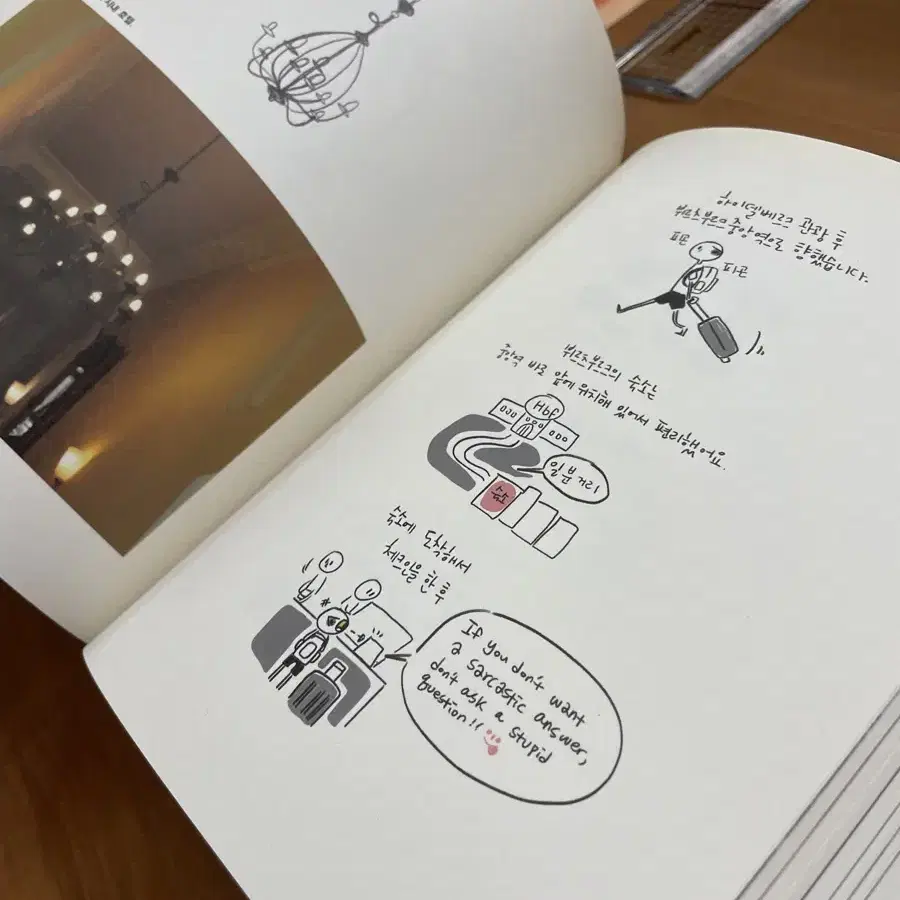 호텔.
하이델베르크 관광 후
뷔르츠부르크 중앙역으로 향했습니다.
피곤
피곤
뷔르츠부르크의 숙소는
중앙역 바로 앞에 위치해 있어서 편리했어요.
Hbf
일분거리
숙소
숙소에 도착해서
체크인을 한 후
If you don't want
a sarcastic answer,
don't ask a stupid
question!!